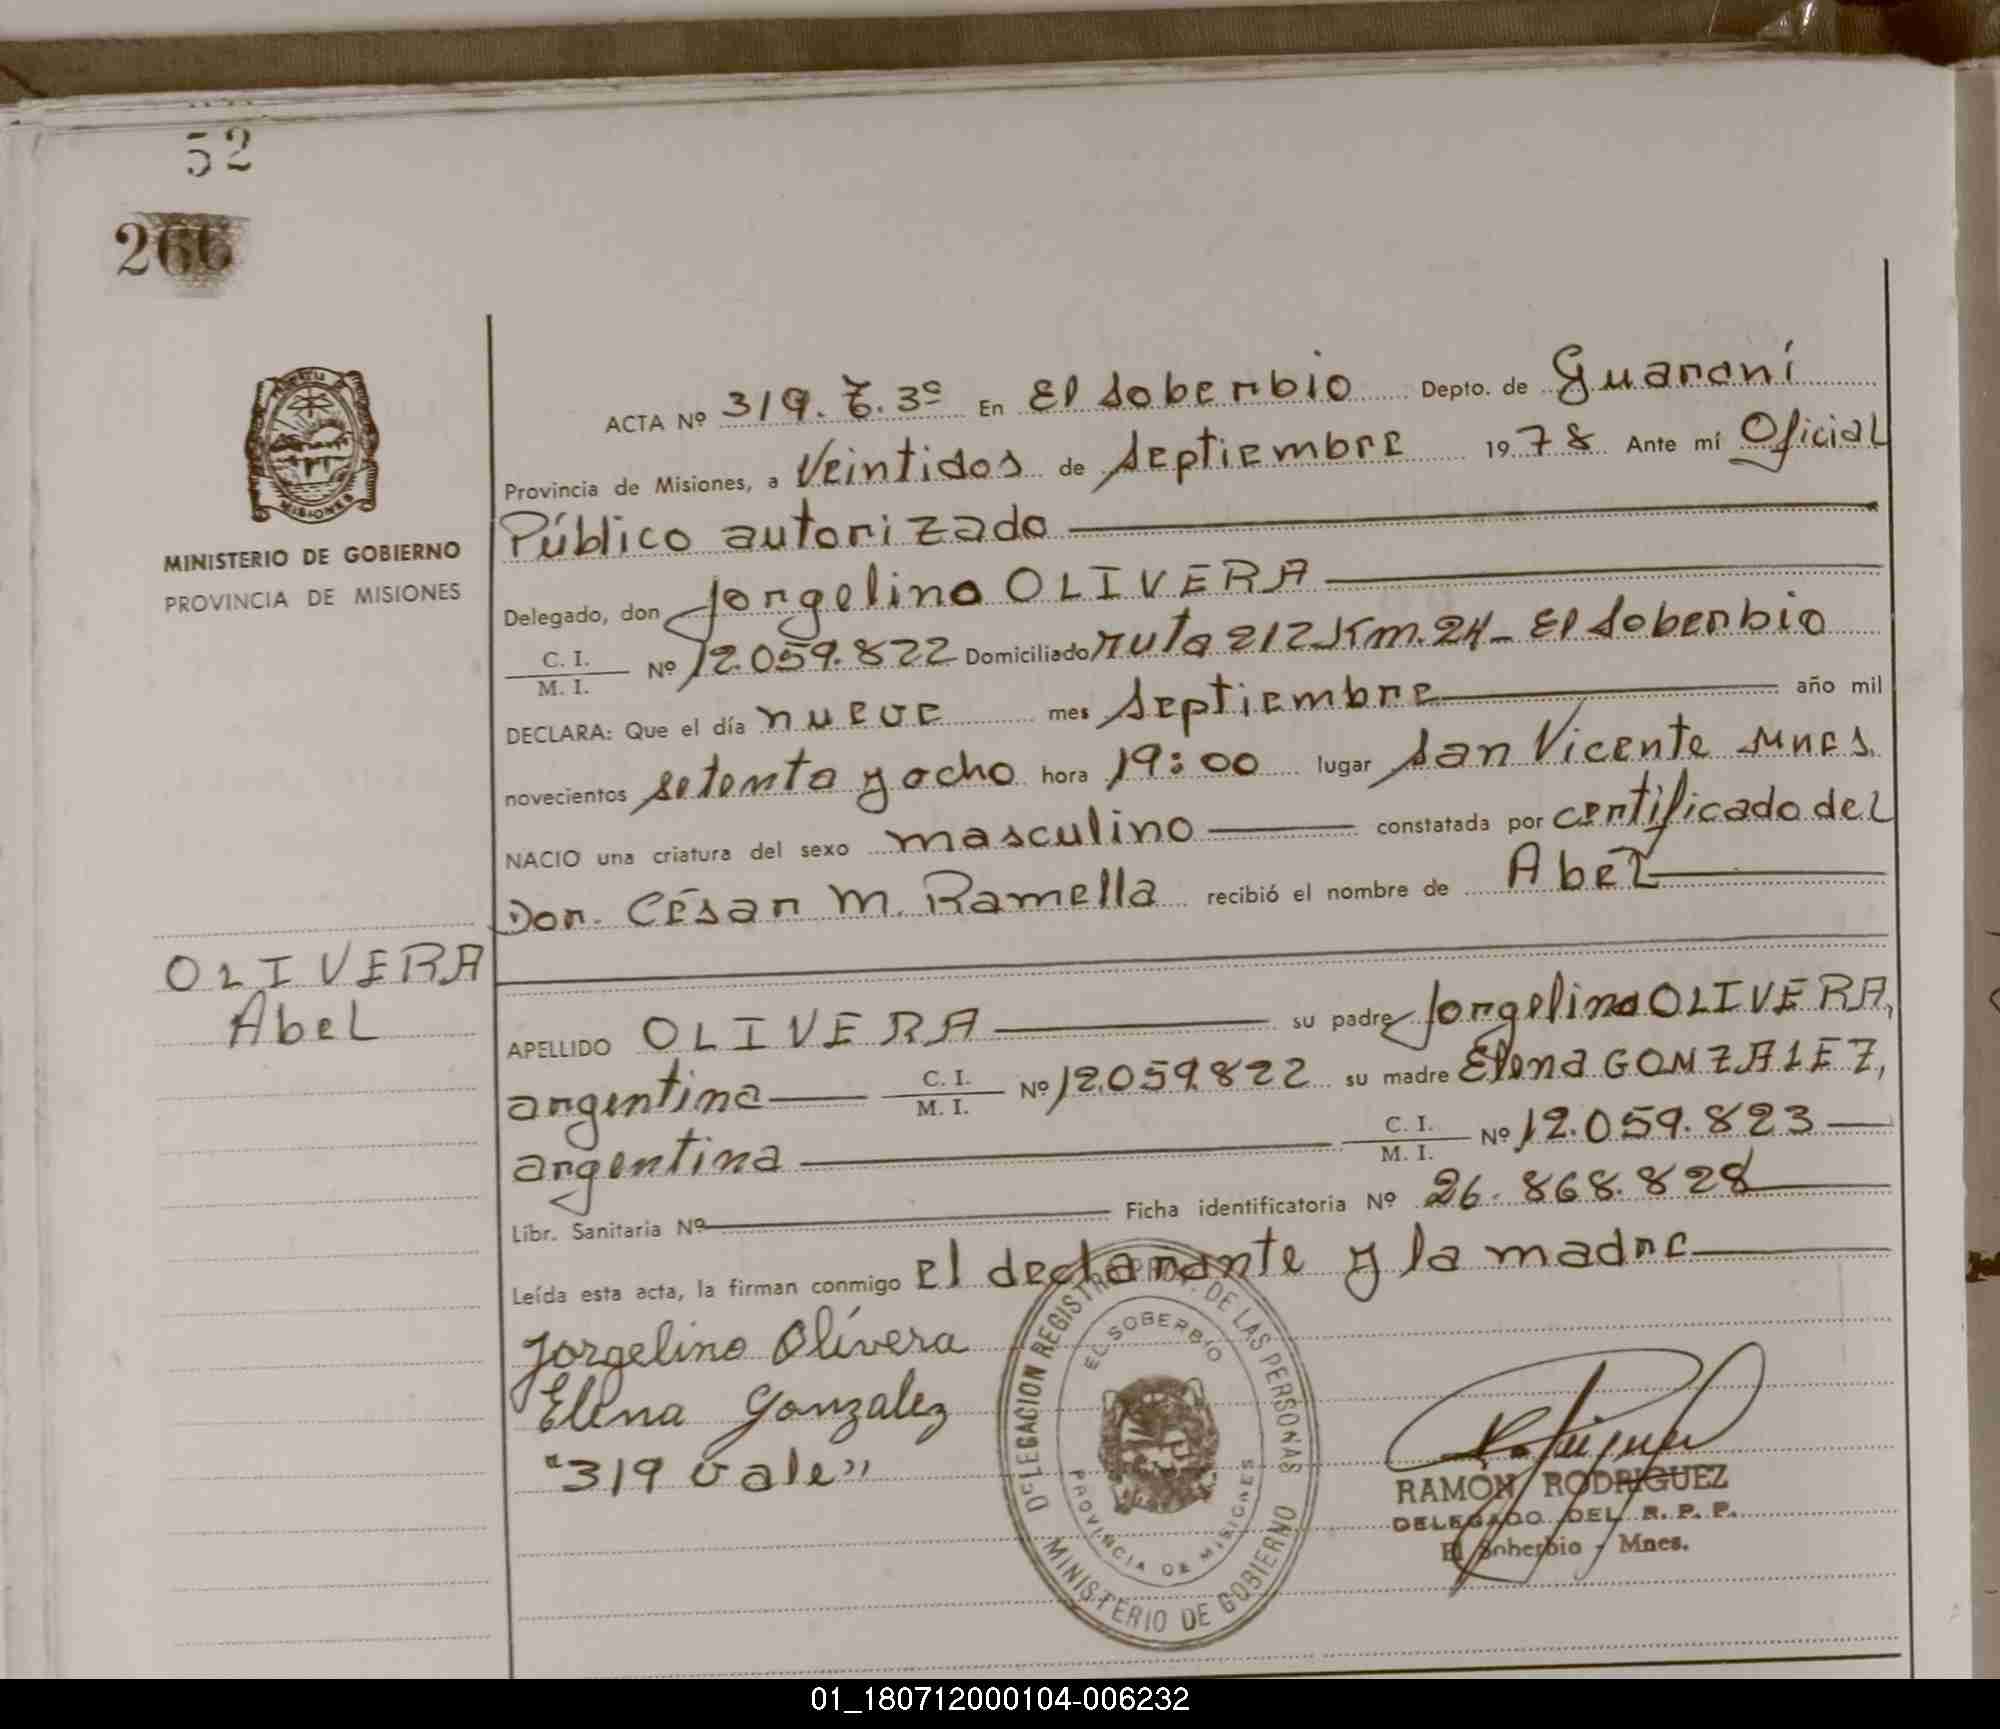 52
266
MINISTERIO DE GOBIERNO
PROVINCIA DE MISIONES
ACTA Nº 319. T. 3º En El Soberbio Depto. de Guaraní
Provincia de Misiones, a Veintidos de Septiembre 1978 Ante mí Oficial
Público autorizado
Delegado, don Jorgelino OLIVERA
C. I.
M. I. Nº 12.059.822 Domiciliado ruta 212 Km. 24 - El Soberbio
DECLARA: Que el día nueve mes Septiembre año mil
novecientos setenta y ocho hora 19:00 lugar San Vicente Mnes.
NACIO una criatura del sexo masculino constatada por certificado del
Dor. César M. Ramella recibió el nombre de Abel
OLIVERA
Abel
APELLIDO OLIVERA su padre Jorgelino OLIVERA,
argentina C. I.
M. I. Nº 12.059.822 su madre Elena GONZALEZ,
argentina C. I.
M. I. Nº 12.059.823
Libr. Sanitaria Nº Ficha identificatoria Nº 26.868.828
Leída esta acta, la firman conmigo el declarante y la madre
Jorgelino Olivera
Elena Gonzalez
"319 vale"
DELEGACION REGISTRO PROV. DE LAS PERSONAS
EL SOBERBIO
PROVINCIA DE MISIONES
MINISTERIO DE GOBIERNO
RAMON RODRIGUEZ
DELEGADO DEL R. P. P.
El Soberbio - Mnes.
01_180712000104-006232